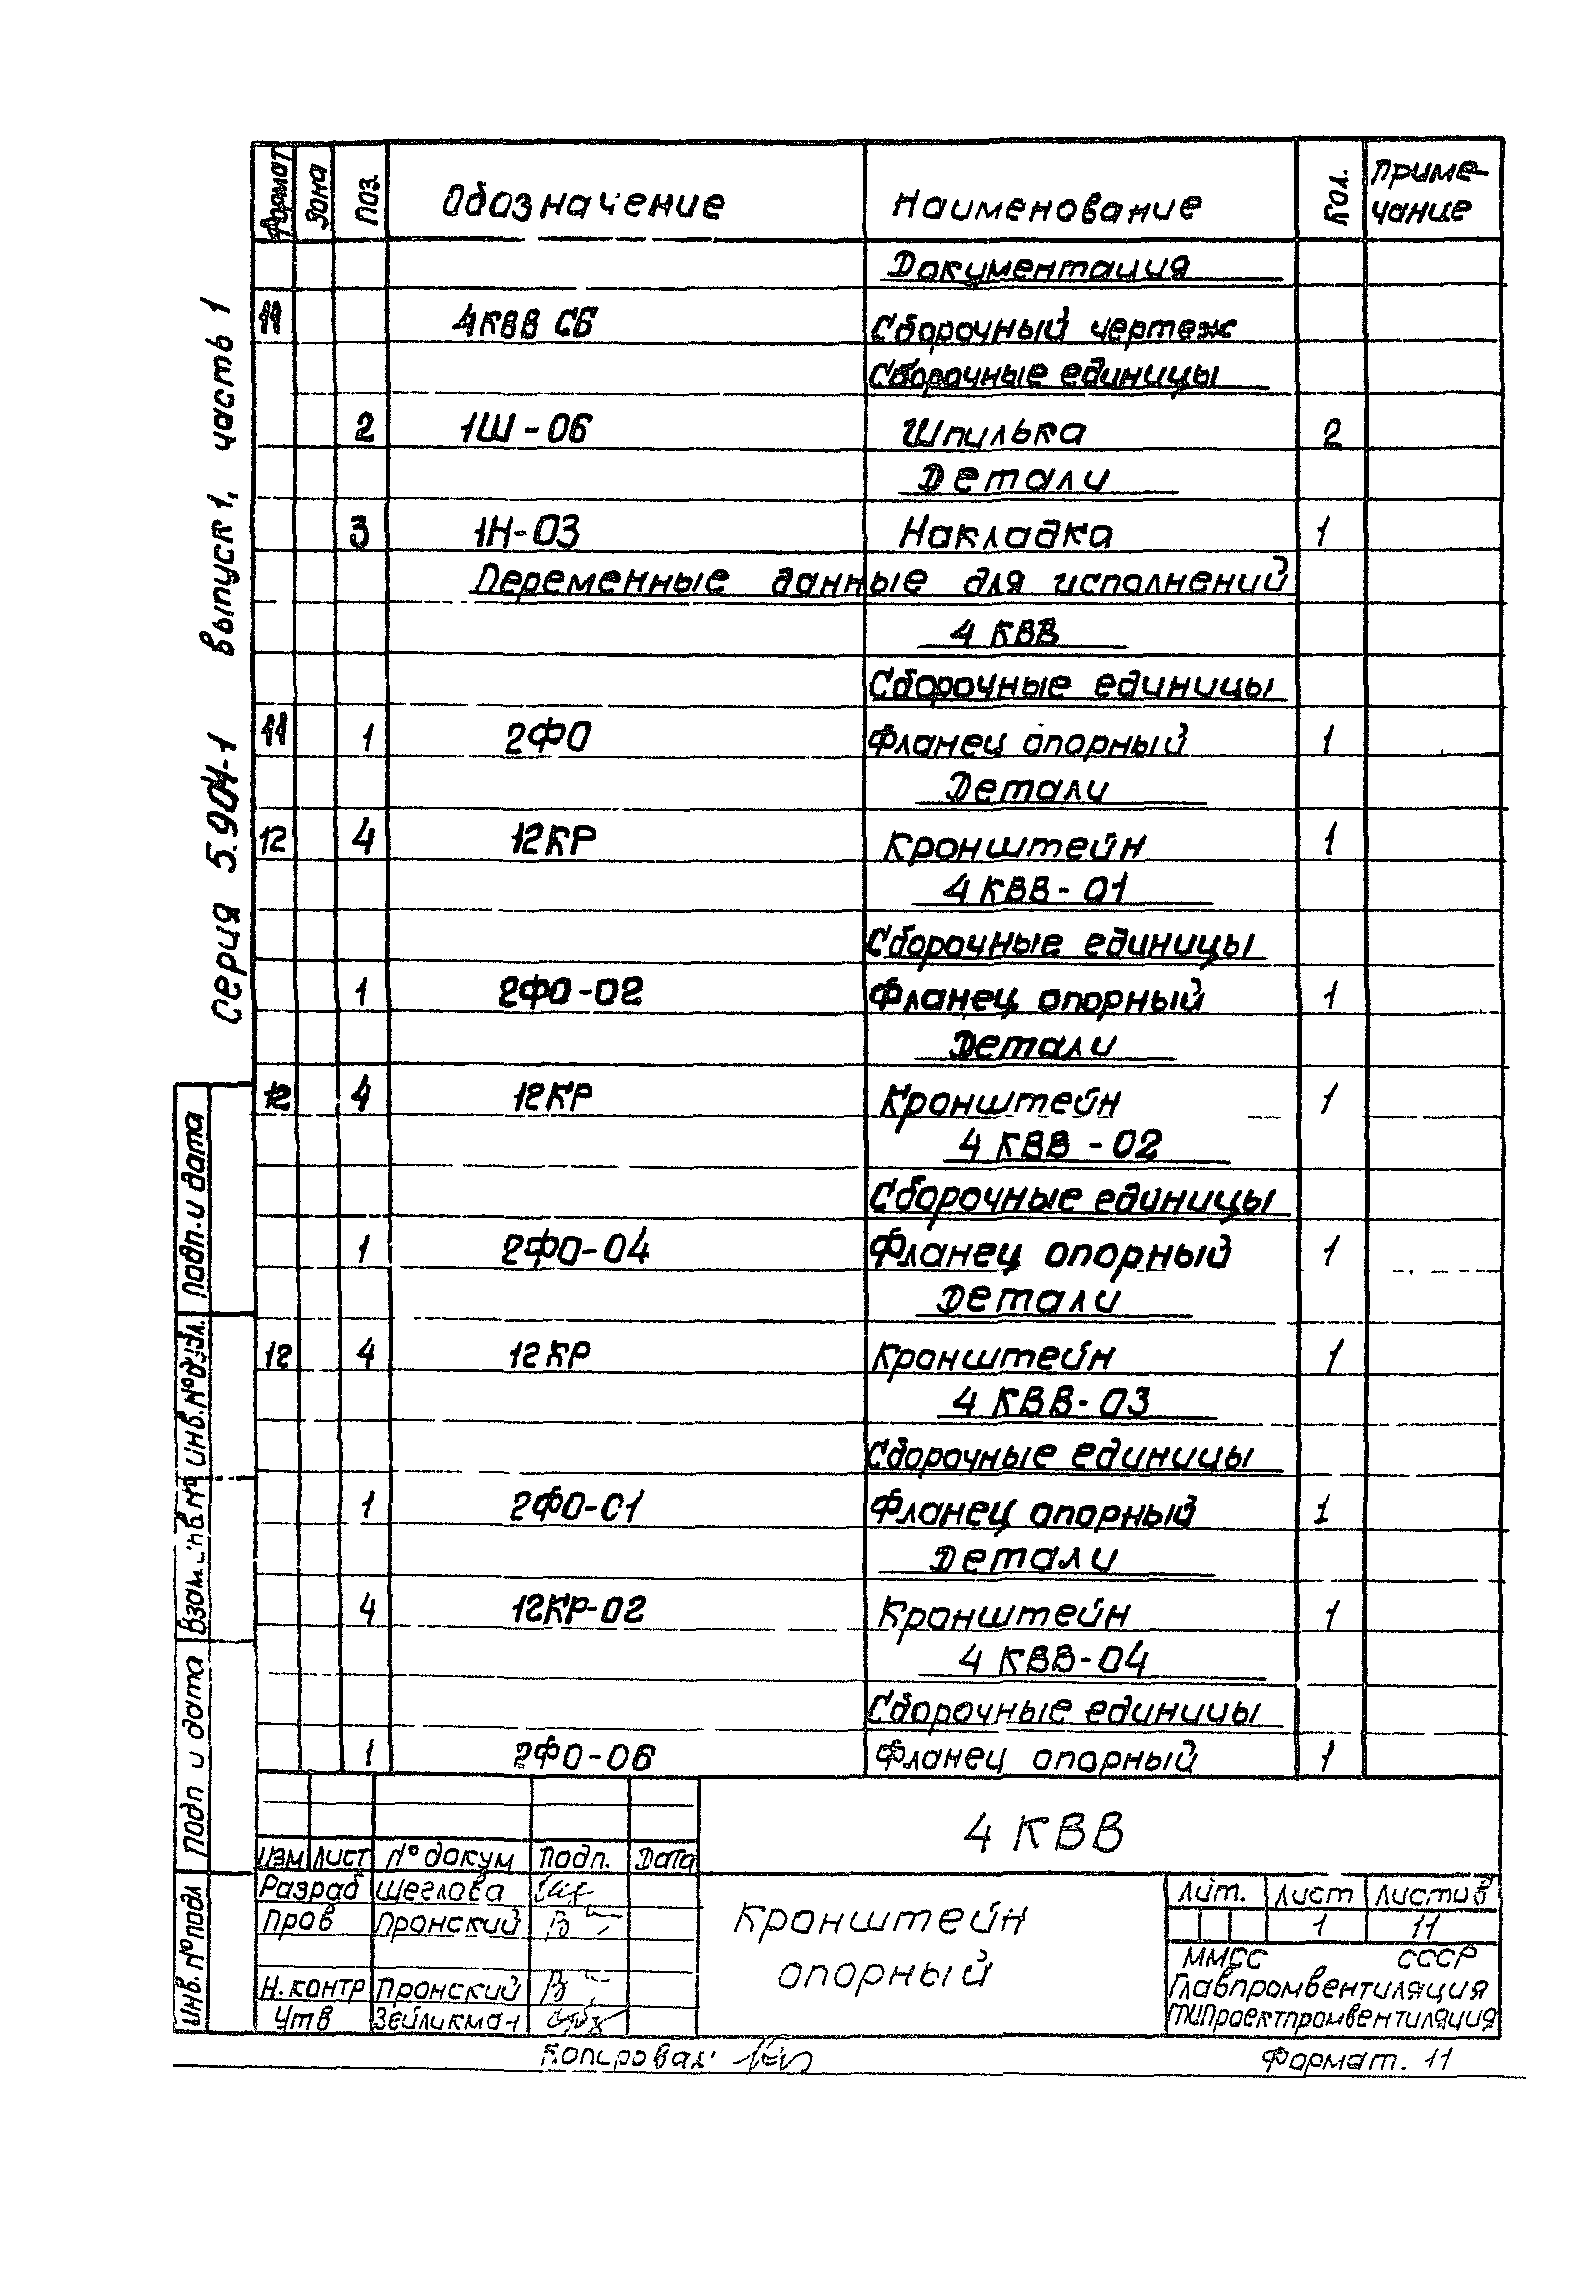 Серия 5.904-1 выпуск 1, часть 1
Формат Зона Поз. Обозначение Наименование Кол. Приме-
чание
Документация
11 4КВВ СБ Сборочный чертеж
Сборочные единицы
2 1Ш-06 Шпилька 2
Детали
3 1Н-03 Накладка 1
Переменные данные для исполнений
4 КВВ
Сборочные единицы
11 1 2ФО Фланец опорный 1
Детали
12 4 12КР Кронштейн 1
4 КВВ-01
Сборочные единицы
1 2ФО-02 Фланец опорный 1
Детали
12 4 12КР Кронштейн 1
4 КВВ-02
Сборочные единицы
1 2ФО-04 Фланец опорный 1
Детали
12 4 12КР Кронштейн 1
4 КВВ-03
Сборочные единицы
1 2ФО-01 Фланец опорный 1
Детали
4 12КР-02 Кронштейн 1
4 КВВ-04
Сборочные единицы
1 2ФО-06 Фланец опорный 1
Подп. и дата
Инв. № дубл.
Взам. инв. №
Подп и дата
Инв. № подл
4 КВВ
Изм Лист № докум Подп. Дата
Разраб Щеглова
Пров Пронский
Н. контр Пронский
Утв Зейликман
Кронштейн
опорный
Лит. Лист Листов
1 11
ММСС СССР
Главпромвентиляция
ГПИПроектпромвентиляция
Копировал: Формат. 11